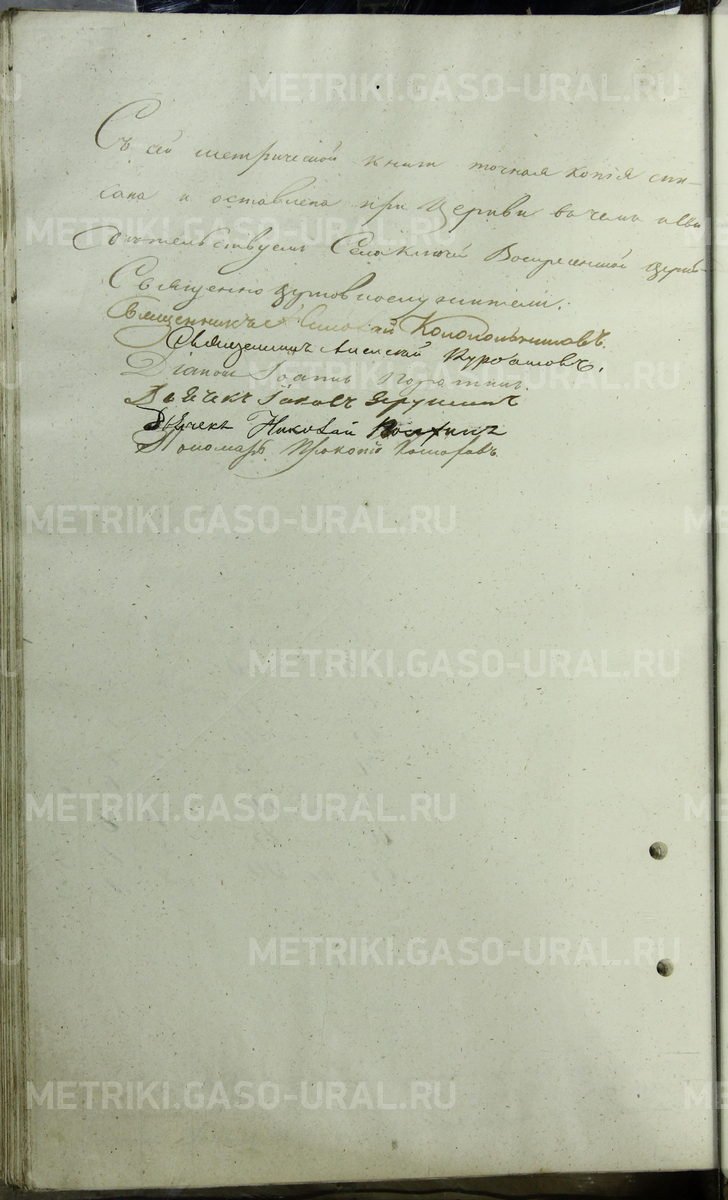 Съ сей метрической книги точная копія спи-
сана и оставлена при Церкви въ чемъ и сви
дѣтельствуемъ Села Ключей Воскресенской церкви
Священно церковнослужители:
Священникъ Колокольниковъ.
Священникъ Алексѣй Курбатовъ.
Діаконъ Іоаннъ
Дьячекъ Іаковъ
Дьячекъ Николай
Пономарь Прокопій
METRIKI.GASO-URAL.RU
METRIKI.GASO-URAL.RU
METRIKI.GASO-URAL.RU
METRIKI.GASO-URAL.RU
METRIKI.GASO-URAL.RU
METRIKI.GASO-URAL.RU
METRIKI.GASO-URAL.RU
METRIKI.GASO-URAL.RU